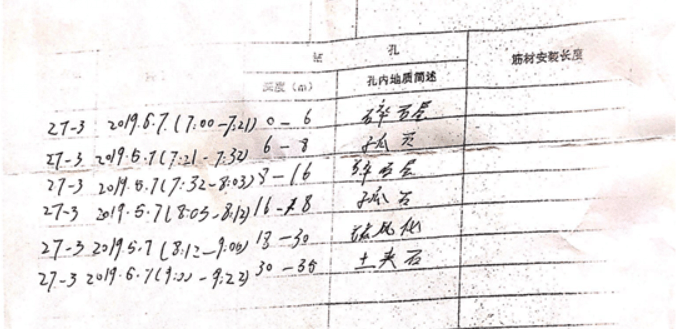 钻 孔
筋材安装长度
深度（m） 孔内地质简述
27-3 2019.5.7.(7:00-7:21) 0-6 碎石层
27-3 2019.5.7(7:21-7:32) 6-8 孤石
27-3 2019.5.7(7:32-8:03) 8-16 碎石层
27-3 2019.5.7(8:03-8:12) 16-18 孤石
27-3 2019.5.7(8:12-9:00) 18-30 强风化
27-3 2019.5.7(9:00-9:22) 30-35 土夹石